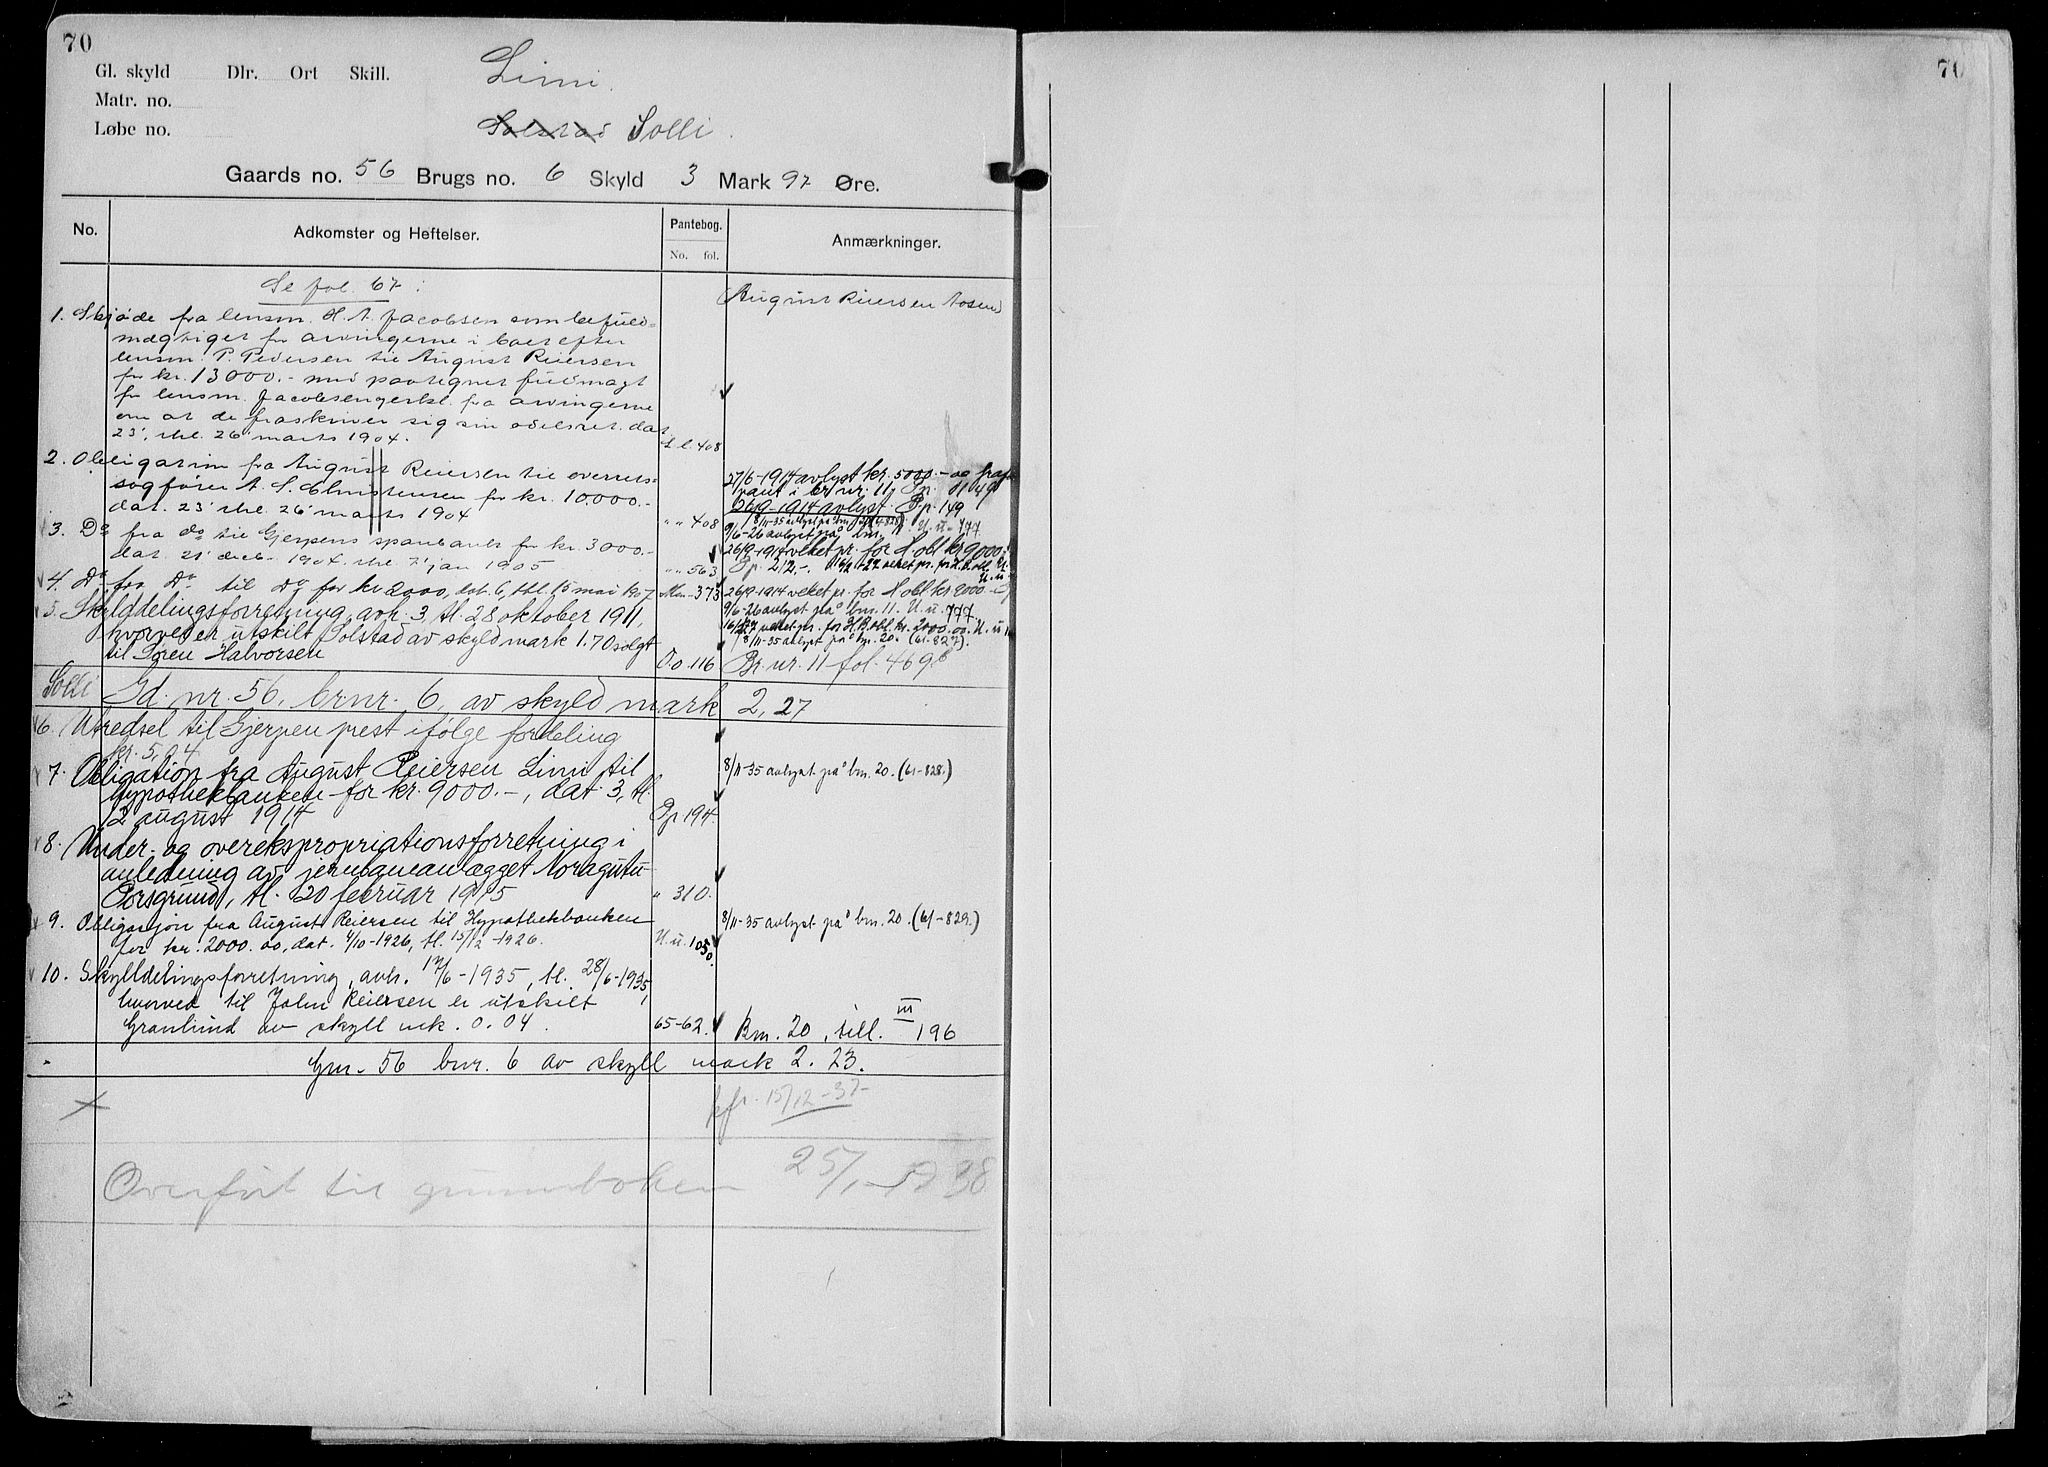 70
Gl. skyld Dlr. Ort Skill.
Limi.
Matr. no.
Løbe no.
Solstad Solli.
Gaards no. 56 Brugs no. 6 Skyld 3 Mark 97 Øre.
No. Adkomster og Heftelser. Pantebog. Anmærkninger.
No. fol.
Se fol. 67.
(August Reiersen Aosen)
1. Skjøde fra lensm. H. A. Jacobsen som befuld-
mægtiget for arvingerne i boet efter
lensm. P. Pedersen til August Reiersen
for kr. 13000.- med paategnet fuldmagt
for lensm. Jacobsen fra arvingerne
om at de fraskriver sig sin odelsret. dat.
23', thl. 26' marts 1904. L l. 408
2. Obligation fra August Reiersen til overrets-
sagfører A. S. Christensen for kr. 10.000.-
dat. 23' thl. 26' marts 1904 " " 408
27/6-1914 avlyst kr. 5000.- og
i br. nr. 11, P p. 49
26/9-1914 avlyst. P p. 149
3. Do fra do til Gjerpens sparebank for kr. 3000.-
dat. 21' decb. 1904. thl. 7' jan 1905 " " 563
8/11-35 avlyst på bnr. 20
9/6-26 avlyst på bnr. 11. U. u. 777
26/9-1914 veket pr. for H obl kr 9000.-
P p. 212.-
4. Do fra Do til Do for kr 2000, dat. 6, thl. 15 mai 1907 373
26/9-1914 veket pr. for H obl kr 9000.-
9/6-26 avlyst på bnr. 11. U. u. 777.
veket pr. for H.B. obl. kr. 2000.00. U. u.
8/11-35 avlyst på bnr. 20. (61-827).
5. Skylddelingsforretning, avh. 3, tl. 28 oktober 1911,
hvorved er utskilt Solstad av skyld mark 1.70 solgt
til Søren Halvorsen O. o. 116 Br. nr. 11 fol. 469b
Solli Gd. nr. 56, br.nr. 6, av skyld mark 2,27
6. Utredsel til Gjerpen prest ifølge fordeling
kr. 5,04
7. Obligation fra August Reiersen Limi til
Hypothekbanken for kr. 9000.-, dat. 3, tl.
12 august 1914 P p 194.
8/11-35 avlyst på bnr. 20. (61-828.)
8. Under- og overekspropriationsforretning i
anledning av jernbaneanlægget Noragutu-
Porsgrund, tl. 20 februar 1915 " 310.
9. Obligasjon fra August Reiersen til Hypothekbanken
for kr. 2000.00, dat. 4/10-1926, tl. 15/12-1926. U. u. 1050.
8/11-35 avlyst på bnr. 20. (61-829.)
10. Skylddelingsforretning, avh. 17/6-1935, tl. 28/6-1935,
hvorved til John Reiersen er utskilt
Granlund av skyll mk. 0.04. 65-62. Bnr. 20, till. III 196
Gnr. 56 bnr. 6 av skyll mark 2.23.
kfr. 15/12-37
Overført til grunnboken 25/1-38
70